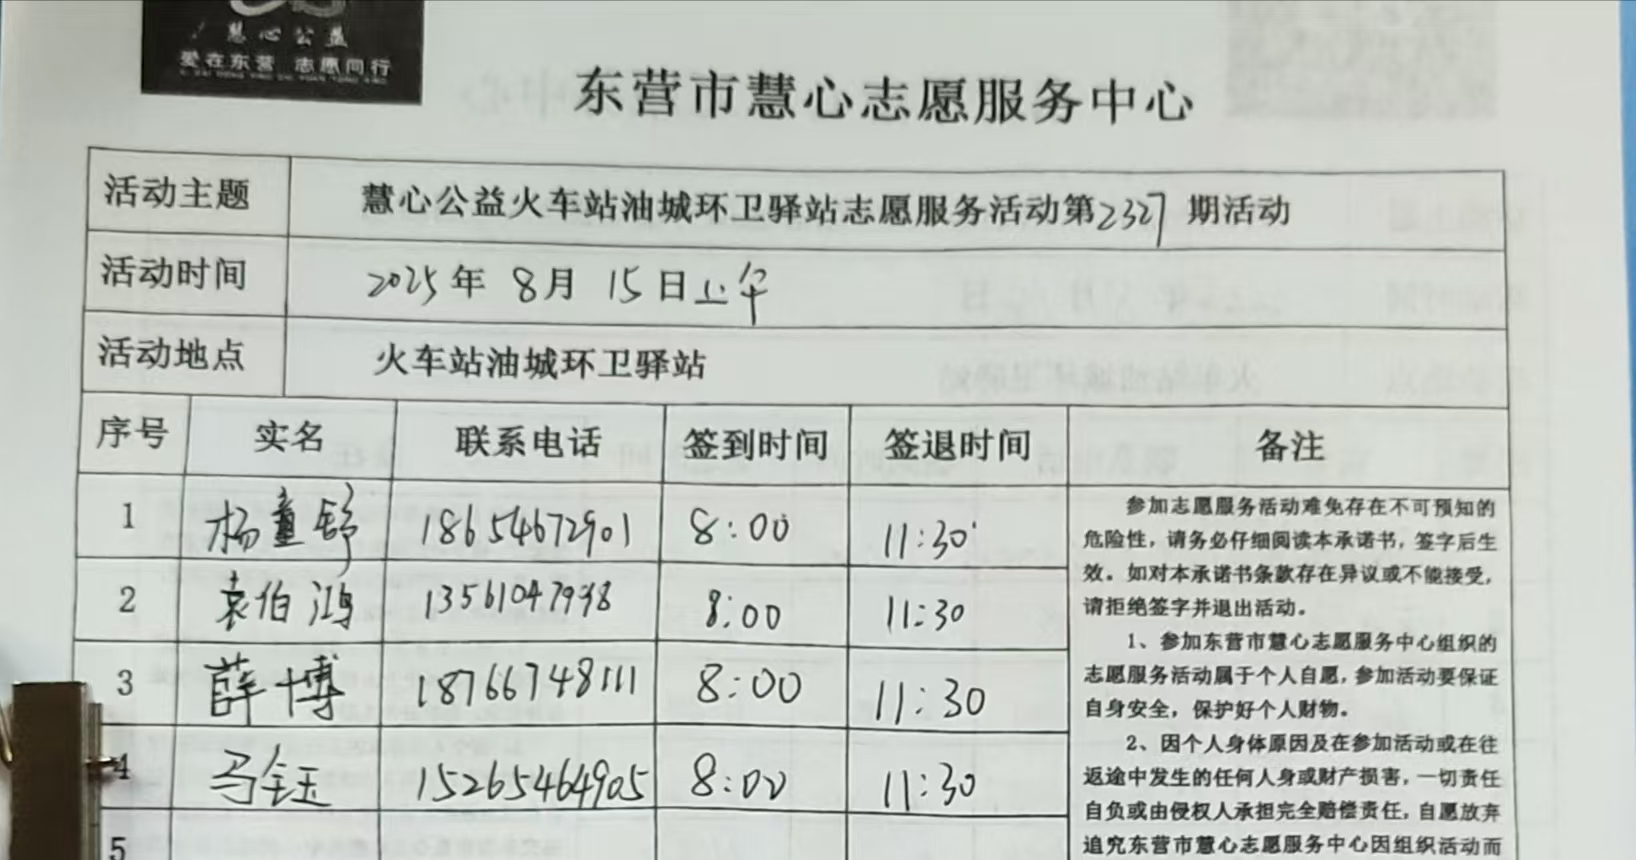 慧心公益
爱在东营 志愿同行
东营市慧心志愿服务中心
活动主题 慧心公益火车站油城环卫驿站志愿服务活动第2327期活动
活动时间 2025年 8月 15日上午
活动地点 火车站油城环卫驿站
序号 实名 联系电话 签到时间 签退时间 备注
1 杨童舒 18654672901 8:00 11:30
2 袁伯鸿 13561047998 8:00 11:30
3 薛博 18766748111 8:00 11:30
4 马钰 15265464905 8:00 11:30
5
参加志愿服务活动难免存在不可预知的
危险性，请务必仔细阅读本承诺书，签字后生
效。如对本承诺书条款存在异议或不能接受，
请拒绝签字并退出活动。
1、参加东营市慧心志愿服务中心组织的
志愿服务活动属于个人自愿，参加活动要保证
自身安全，保护好个人财物。
2、因个人身体原因及在参加活动或在往
返途中发生的任何人身或财产损害，一切责任
自负或由侵权人承担完全赔偿责任，自愿放弃
追究东营市慧心志愿服务中心因组织活动而